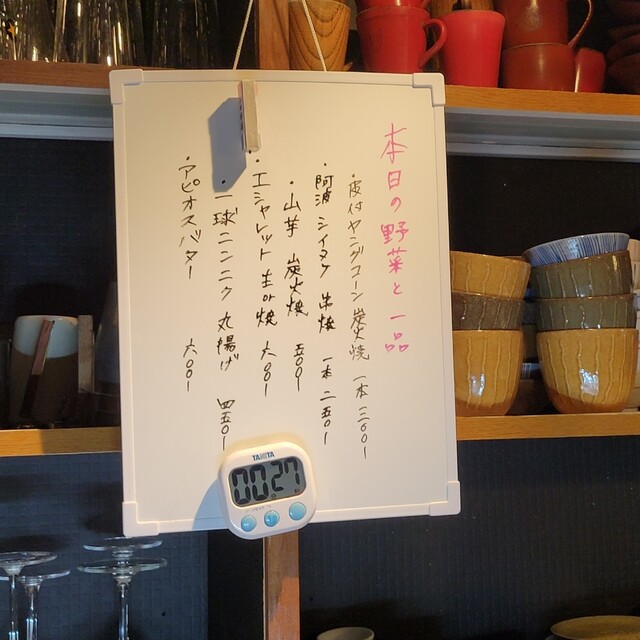 本日の野菜と一品
・皮付ヤングコーン 炭火焼 一本 三〇〇ー
・阿波シイタケ 串焼 一本 二五〇ー
・山芋 炭火焼 五〇〇ー
・エシャレット 生or焼 六〇〇ー
・一球ニンニク 丸揚げ 四五〇ー
・アピオスバター 六〇〇ー
TANITA
00:27